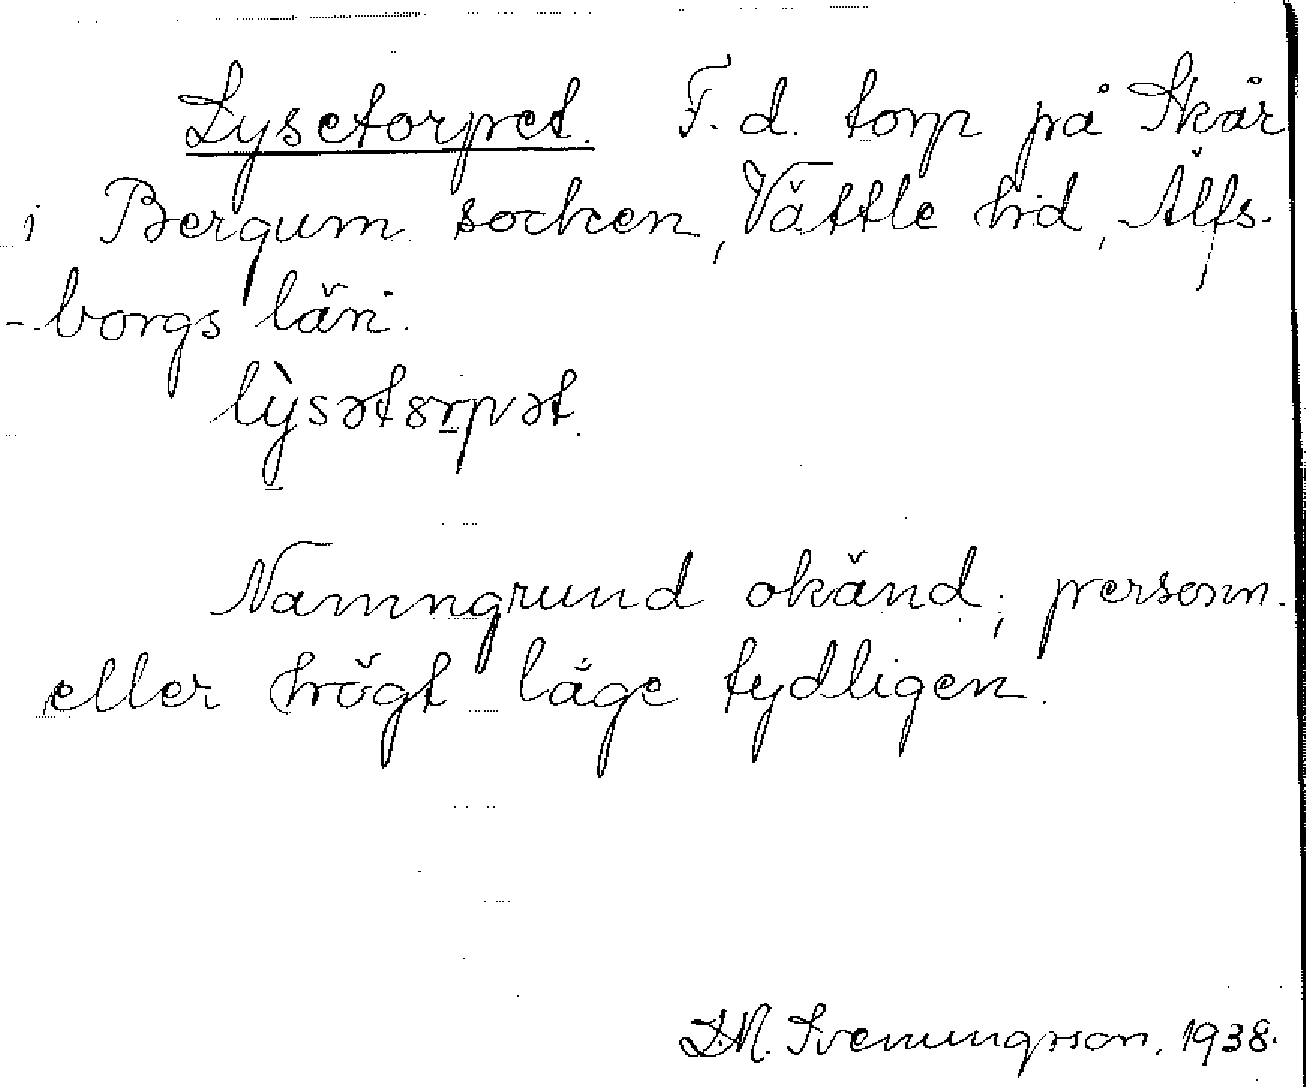 Lysetorpet. F.d. torp på Skår
i Bergum socken, Vättle hd, Älfs-
-borgs län.
lỳsətꝏrpət.
Namngrund okänd; personn.
eller högt läge tydligen.
D.N. Svenungsson. 1938.